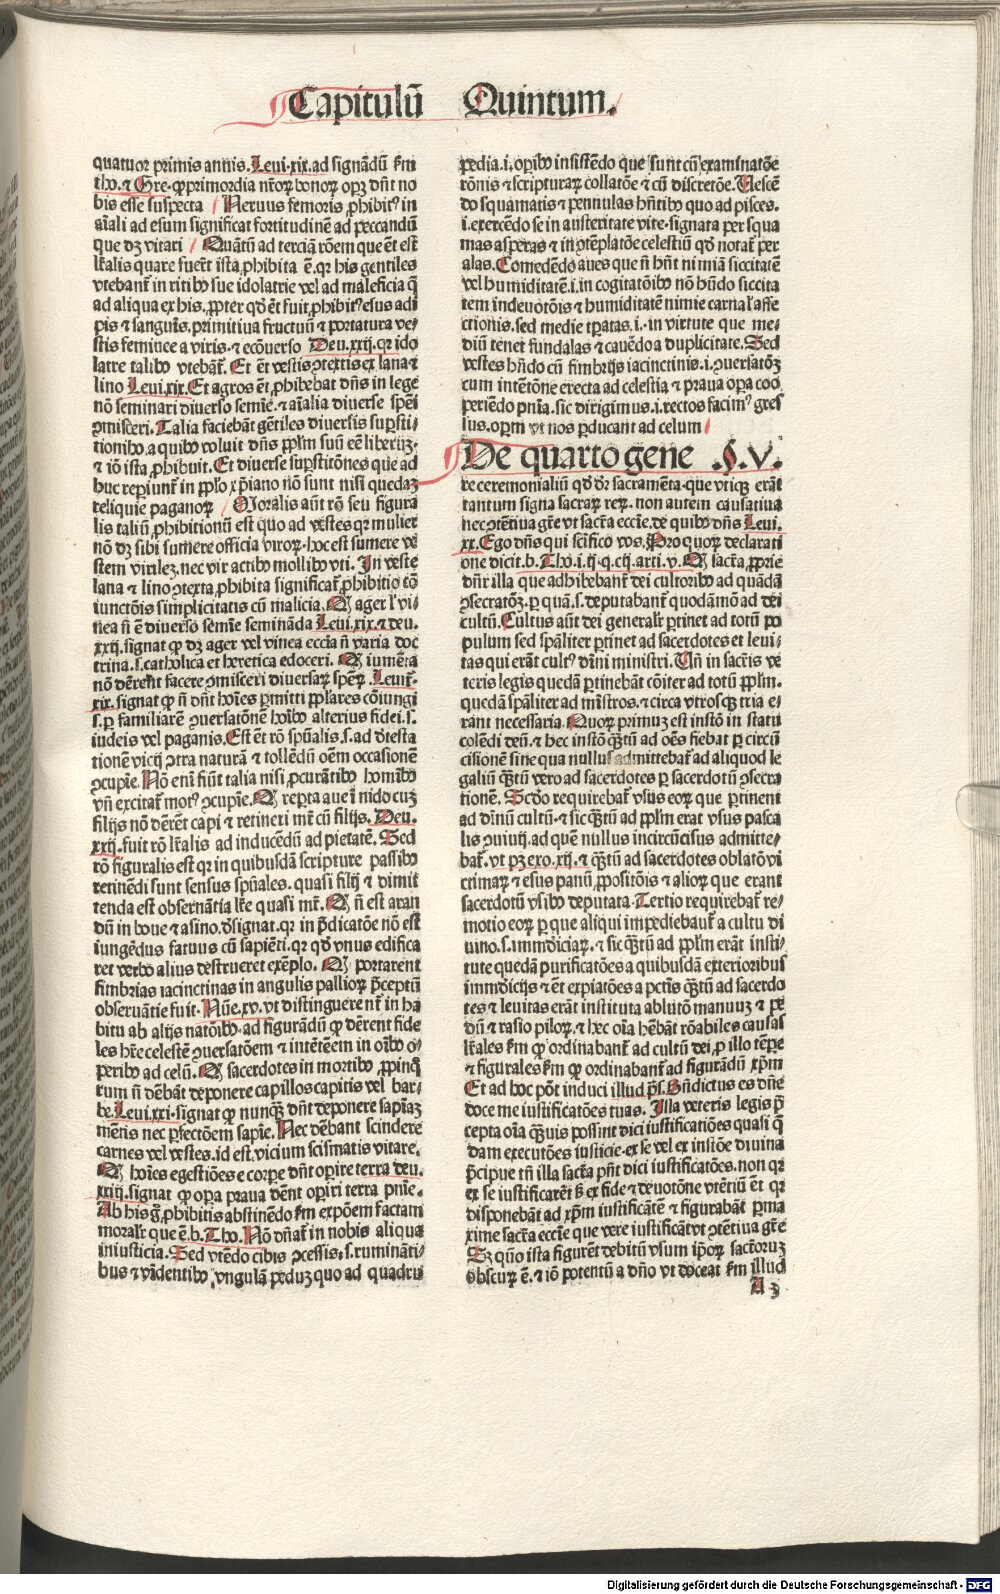 Capitulū Quintum.
quatuor primis annis. Leui.xix. ad signādū ẜm
tho. ⁊ Gre. ꝙ primordia nr̄oꝝ bonoꝝ opeꝝ dn̄t no
bis esse suspecta Neruus femoris ꝓhibitꝰ in
aīali ad esum significat fortitudinē ad peccandū
que dꝫ vitari Quātū ad terciā rōem que ēt est
lr̄alis quare fuer̄t ista ꝓhibita ē. qꝛ his gentiles
vtebant̄ in ritibꝰ sue idolatrie vel ad maleficia q̄
ad aliqua ex his. ꝓpter qd̓ ēt fuit ꝓhibitꝰ esus adi
pis ⁊ sanguīs. primitiua fructuū ⁊ portatura ve-
stis feminee a viris. ⁊ ecōuerso Deu.xxij. qꝛ ido
latre talibꝰ vtebāt̄. Et ēt vestis ꝯtextis ex lana ⁊
lino Leui.xix. Et agros ēt ꝓhibebat dn̄s in lege
nō seminari diuerso semīe. ⁊ aīalia diuerse spēi
ꝯmisceri. Talia faciebāt gētiles diuersis suꝑsti-
tionibꝰ. a quibꝰ voluit dn̄s ppl̄m suū eē liberūꝫ.
⁊ iō ista ꝓhibuit. Et diuerse suꝑstitōnes que ad
huc reꝑiunt̄ in ppl̄o xp̄iano nō sunt nisi quedaꝫ
reliquie paganoꝝ Moralis aūt rō seu figura
lis taliū ꝓhibitionū est quo ad vestes qꝛ mulier
nō dꝫ sibi sumere officia viroꝝ. hoc est sumere ve
stem virileꝫ. nec vir actibꝰ mollibꝰ vti. In veste
lana ⁊ lino ꝯtexta ꝓhibita significat̄ ꝓhibitio cō
iunctōis simplicitatis cū malicia. Qꝫ ager l̓ vi-
nea n̄ ē diuerso semīe semināda Leui.xix. ⁊ deu.
xxij. signat ꝙ dꝫ ager vel vinea eccīa n̄ varia doc
trina. s. catholica et heretica edoceri. Qꝫ iumēta
nō dēreēt facere ꝯmisceri diuersaꝝ spēꝝ. Leuit̄.
xix. signat ꝙ n̄ dn̄t hoīes ꝑmitti ppl̄ares cōiungi
s. ꝑ familiarē ꝯuersatōnē hoībꝰ alterius fidei. s.
iudeis vel paganis. Est ēt rō spūalis. s. ad ꝺtesta
tionē vicij ꝯtra naturā ⁊ tollēdū oēm occasionē
ꝯcupīe. Nō enī fiūt talia nisi ꝓcurātibꝰ homībꝰ
vn̄ excitat̄ motꝰ ꝯcupīe. Qꝫ reꝑta aue ī nido cuꝫ
filijs nō dēret capi ⁊ retineri mr̄ cū filijs. Deu.
xxij. fuit rō lr̄alis ad inducēdū ad pietatē. Sed
rō figuralis est qꝛ in quibusdā scripture passibꝰ
retinēdi sunt sensus spūales. quasi filij ⁊ dimit
tenda est obseruātia lr̄e quasi mr̄. Qꝫ n̄ est aran
dū in boue ⁊ asino. ꝺsignat. qꝛ in p̄dicatōe nō est
iungēdus fatuus cū sapiēti. qꝛ qd̓ vnus edifica
ret verbo alius destrueret exēplo. Qꝫ portarent
fimbrias iacinctinas in angulis pallioꝝ p̄ceptū
obseruātie fuit. Nūe.xv. vt distinguerent̄ in ha
bitu ab alijs natōibꝰ. ad figurādū ꝙ dērent fide
les hr̄e celestē ꝯuersatōem ⁊ intētēem in oībꝰ o-
peribꝰ ad celū. Qꝫ sacerdotes in mortibꝰ ꝓpinqͣ
rum n̄ dēbāt deponere capillos capitis vel bar-
be. Leui.xxi. signat ꝙ nunqͣꝫ dn̄t deponere sapīaꝫ
mētis nec ꝑfectōem sapīe. Nec dēbant scindere
carnes vel vestes. id est. vicium scismatis vitare.
Qꝫ hoīes egestiōes e corꝑe dn̄t oꝑire terra deu.
xxiij. signat ꝙ oꝑa praua dēnt oꝑiri terra pnīe.
Ab his gͦ ꝓhibitis abstinēdo ẜm expōem factam
moralr̄ que ē. b. Tho. Nō dn̄at̄ in nobis aliqua
iniusticia. Sed vtēdo cibis ꝯcessis. s. ruminātī-
bus ⁊ vīdentibꝰ vngulā ꝑeduꝫ quo ad quadru
pedia. i. oꝑibꝰ insistēdo que sunt cū examīnatōe
rōnis ⁊ scripturaꝝ collatōe ⁊ cū discretōe. Vescē
do squamatis ⁊ pennulas hn̄tibꝰ quo ad pisces.
i. exercēdo se in austeritate vite. signata per squa
mas asperas ⁊ in ꝯtēplatōe celestiū qd̓ notat̄ per
alas. Comedēdo aues que n̄ hn̄t nimiā siccitatē
vel humiditatē. i. in cogitatōibꝰ nō hn̄do siccita
tem indeuotōis ⁊ humiditatē nimie carnal̓ affe
ctionis. sed medie tꝑatas. i. in virtute que me-
diū tenet fundalas ⁊ cauēdo a duplicitate. Sed
vestes hn̄do cū fimbrijs iacinctinis. i. ꝯuersatōꝫ
cum intētōne erecta ad celestia ⁊ praua oꝑa coo
periēdo pn̄ia. sic dirigimus. i. rectos facimꝰ gres
sus. oꝑm vt nos ꝑducant ad celum
De quarto gene .§.V.
re ceremonialiū qd̓ dr̄ sacramēta. que vtiqꝫ erāt
tantum signa sacraꝝ reꝝ. non autem causatiua
nec ꝯtētiua gr̄e vt sacr̄a eccīe. de quibꝰ dn̄s Leui.
xx. Ego dn̄s qui scīfico vos. Pro quoꝝ declarati
one dicit. b. Tho. i. ij. q. cij. arti. v. Qꝫ sacr̄a ꝓprie
dn̄r illa que adhibebant̄ dei cultoribꝰ ad quādā
ꝯsecratōꝫ. ꝑ quā. s. deputabant̄ quodāmō ad dei
cultū. Cultus aūt dei generalr̄ ꝑtinet ad totū po
pulum sed spāliter ꝑtinet ad sacerdotes et leui-
tas qui erāt cultꝰ dīni ministri. Tn̄ in sacr̄is ve
teris legis quedā ꝑtinebāt cōiter ad totū ppl̄m.
quedā spāliter ad mīstros. ⁊ circa vtrosqꝫ tria e-
rant necessaria. Quoꝝ primuꝫ est instō in statu
colēdi deū. ⁊ hec instō qͣꝫtū ad oēs fiebat ꝑ circū
cisionē sine qua nullus admittebat̄ ad aliquod le
galiū qͣꝫtū vero ad sacerdotes ꝑ sacerdotū ꝯsecra
tionē. Scdo requirebat̄ vsus eoꝝ que ꝑtinent
ad dīnū cultū. ⁊ sic qͣꝫtū ad ppl̄m erat vsus pasca
lis ꝯuiuij. ad quē nullus incircūcisus admitte-
bat̄. vt pꝫ exo.xij. ⁊ qͣꝫtū ad sacerdotes oblatō vi
ctimaꝝ ⁊ esus panū ꝓpositōis ⁊ alioꝝ que erant
sacerdotū vsibꝰ deputata. Tertio requirebat̄ re-
motio eoꝝ ꝑ que aliqui impediebant̄ a cultu di
uino. s. immūdiciaꝝ. ⁊ sic qͣꝫtū ad ppl̄m erāt insti-
tute quedā purificatōes a quibusdā exterioribus
immūdicijs ⁊ ēt expiatōes a pctīs qͣꝫtū ad sacerdo
tes ⁊ leuitas erāt instituta ablutō manuuꝫ ⁊ pe
dū ⁊ rasio piloꝝ. ⁊ hec oīa hēbāt rōabiles causas
lr̄ales ẜm ꝙ ordinabant̄ ad cultū dei. ꝓ illo tꝑe
⁊ figurales ẜm ꝙ ordinabant̄ ad figurādū xp̄m
Et ad hoc pōt induci illud ps̄. Bn̄dictus es dn̄e
doce me iustificatōes tuas. Illa veteris legis p̄
cepta oīa qͣꝫuis possint dici iustificatiōes quasi q̄
dam executōes iusticie. ex se vel ex instiōe diuina
p̄cipue tn̄ illa sacr̄a pn̄t dici iustificatōes. non qꝛ
ex se iustificarēt ꝫ ex fide ⁊ deuotōne vtētiū ēt qꝛ
disponebāt ad xp̄m iustificātē ⁊ figurabāt ꝑma
xime sacr̄a eccīe que vere iustificātvt ꝯtētiua gr̄e
Sꝫ qūo ista figurēt debitū vsum ip̄oꝝ sacr̄oruꝫ
obscuꝝ ē. ⁊ iō potentū a dn̄o vt doceat ẜm illud
A 3
Digitalisierung gefördert durch die Deutsche Forschungsgemeinschaft - DFG